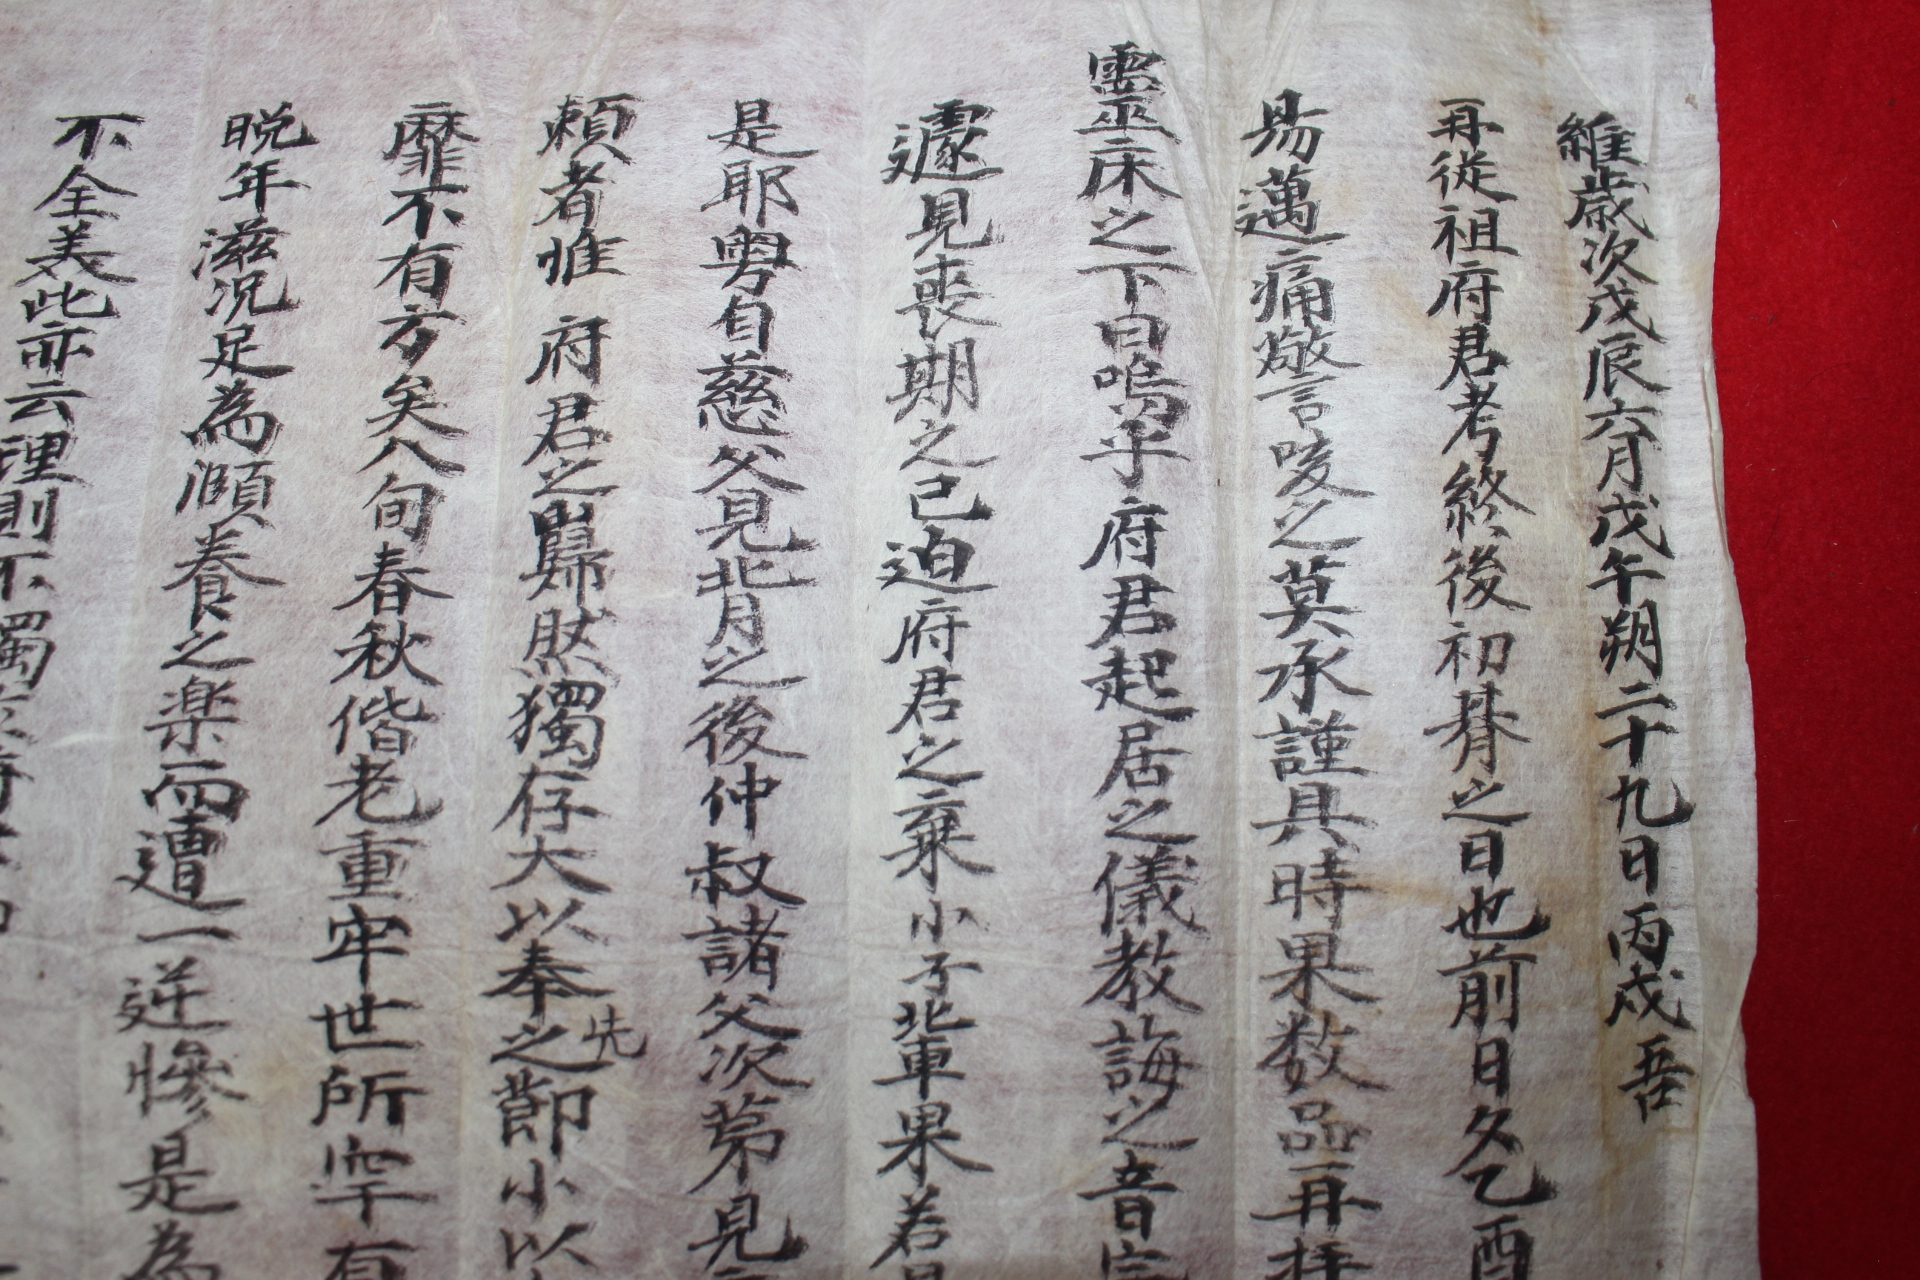 維歲次戊辰六月戊午朔二十九日丙戌吾
再從祖府君考終後初朞之日也前日夕乙酉
昜邁痛儆言唆之莫承謹具時果数品再拜
靈巫床之下曰嗚乎府君起居之儀教誨之音
遽見喪期之已迫府君之棄小子輩果若
是耶粤自慈父見背之後仲叔諸父次苐見
頼者惟府君之巋然獨存大以奉先之節小以
靡不有方矣八旬春秋偕老重牢世所罕有
晩年滋況足為灝養之楽而遭一逆慘是為
不全美此亦云理則不獨